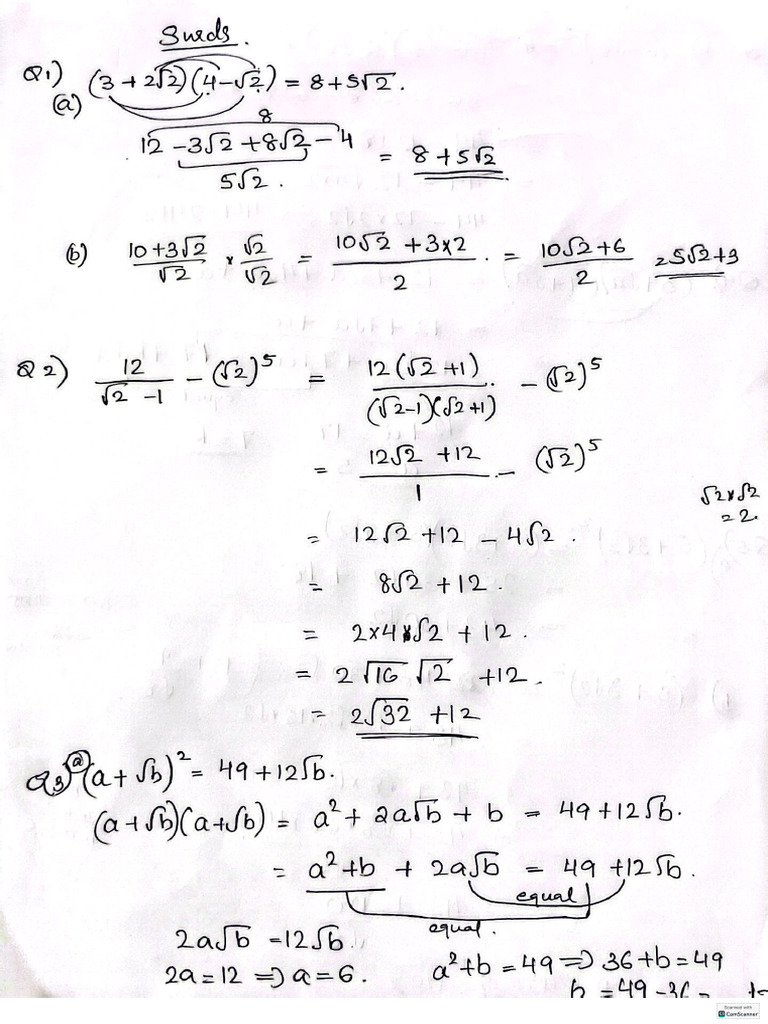 Surds.
Q1) (3 + 2√2)(4 - √2) = 8 + 5√2.
(a)
8
12 - 3√2 + 8√2 - 4 = 8 + 5√2
5√2.
(b) 10+3√2/√2 × √2/√2 = 10√2 + 3×2/2 = 10√2+6/2 = 5√2+3
Q2) 12/√2 - 1 - (√2)^5 = 12(√2 + 1)/(√2-1)(√2+1) - (√2)^5
= 12√2 + 12/1 - (√2)^5
√2×√2
= 2.
= 12√2 + 12 - 4√2.
= 8√2 + 12.
= 2×4×√2 + 12.
= 2√16 √2 + 12.
= 2√32 + 12
Q3 (a) (a + √b)^2 = 49 + 12√b.
(a+√b)(a+√b) = a^2 + 2a√b + b = 49 + 12√b.
= a^2 + b + 2a√b = 49 + 12√b.
equal
equal.
2a√b = 12√b.
2a = 12 => a = 6. a^2 + b = 49 => 36 + b = 49
b = 49 - 36 =
Scanned with
CamScanner